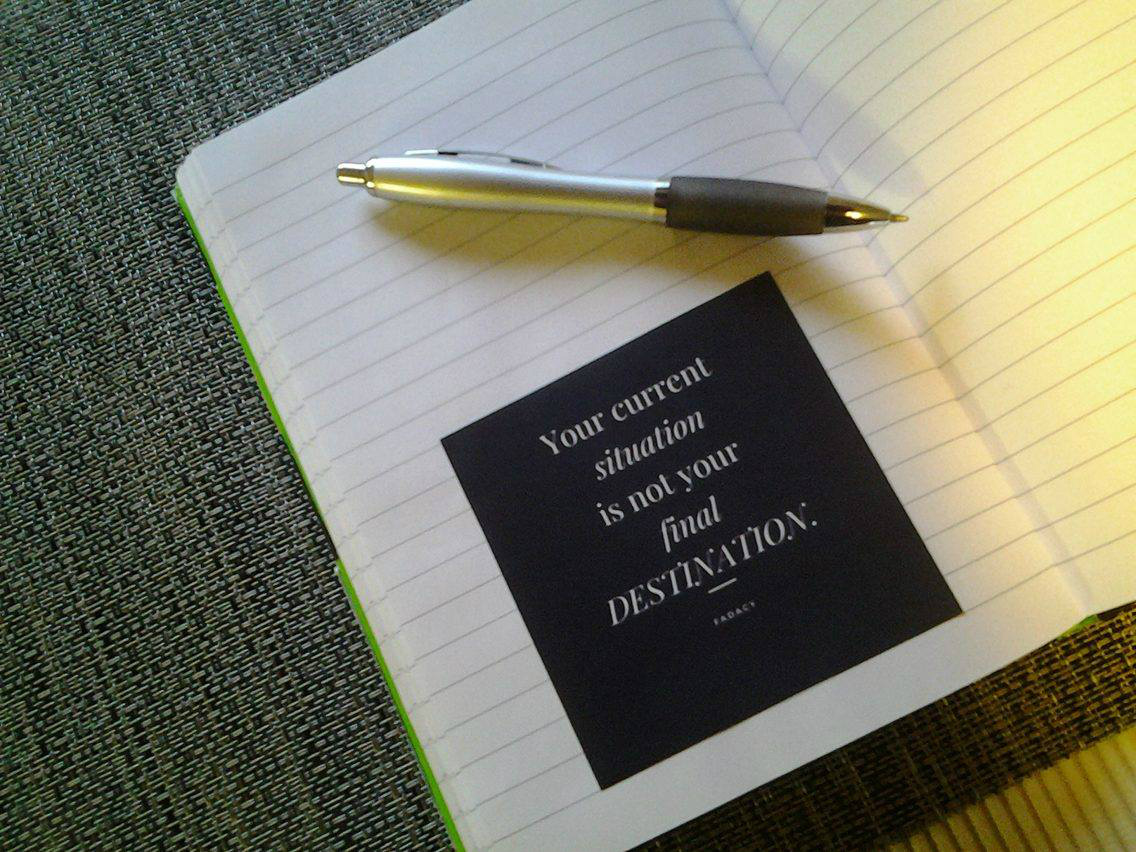 Your current
situation
is not your
final
DESTINATION.
FADACY